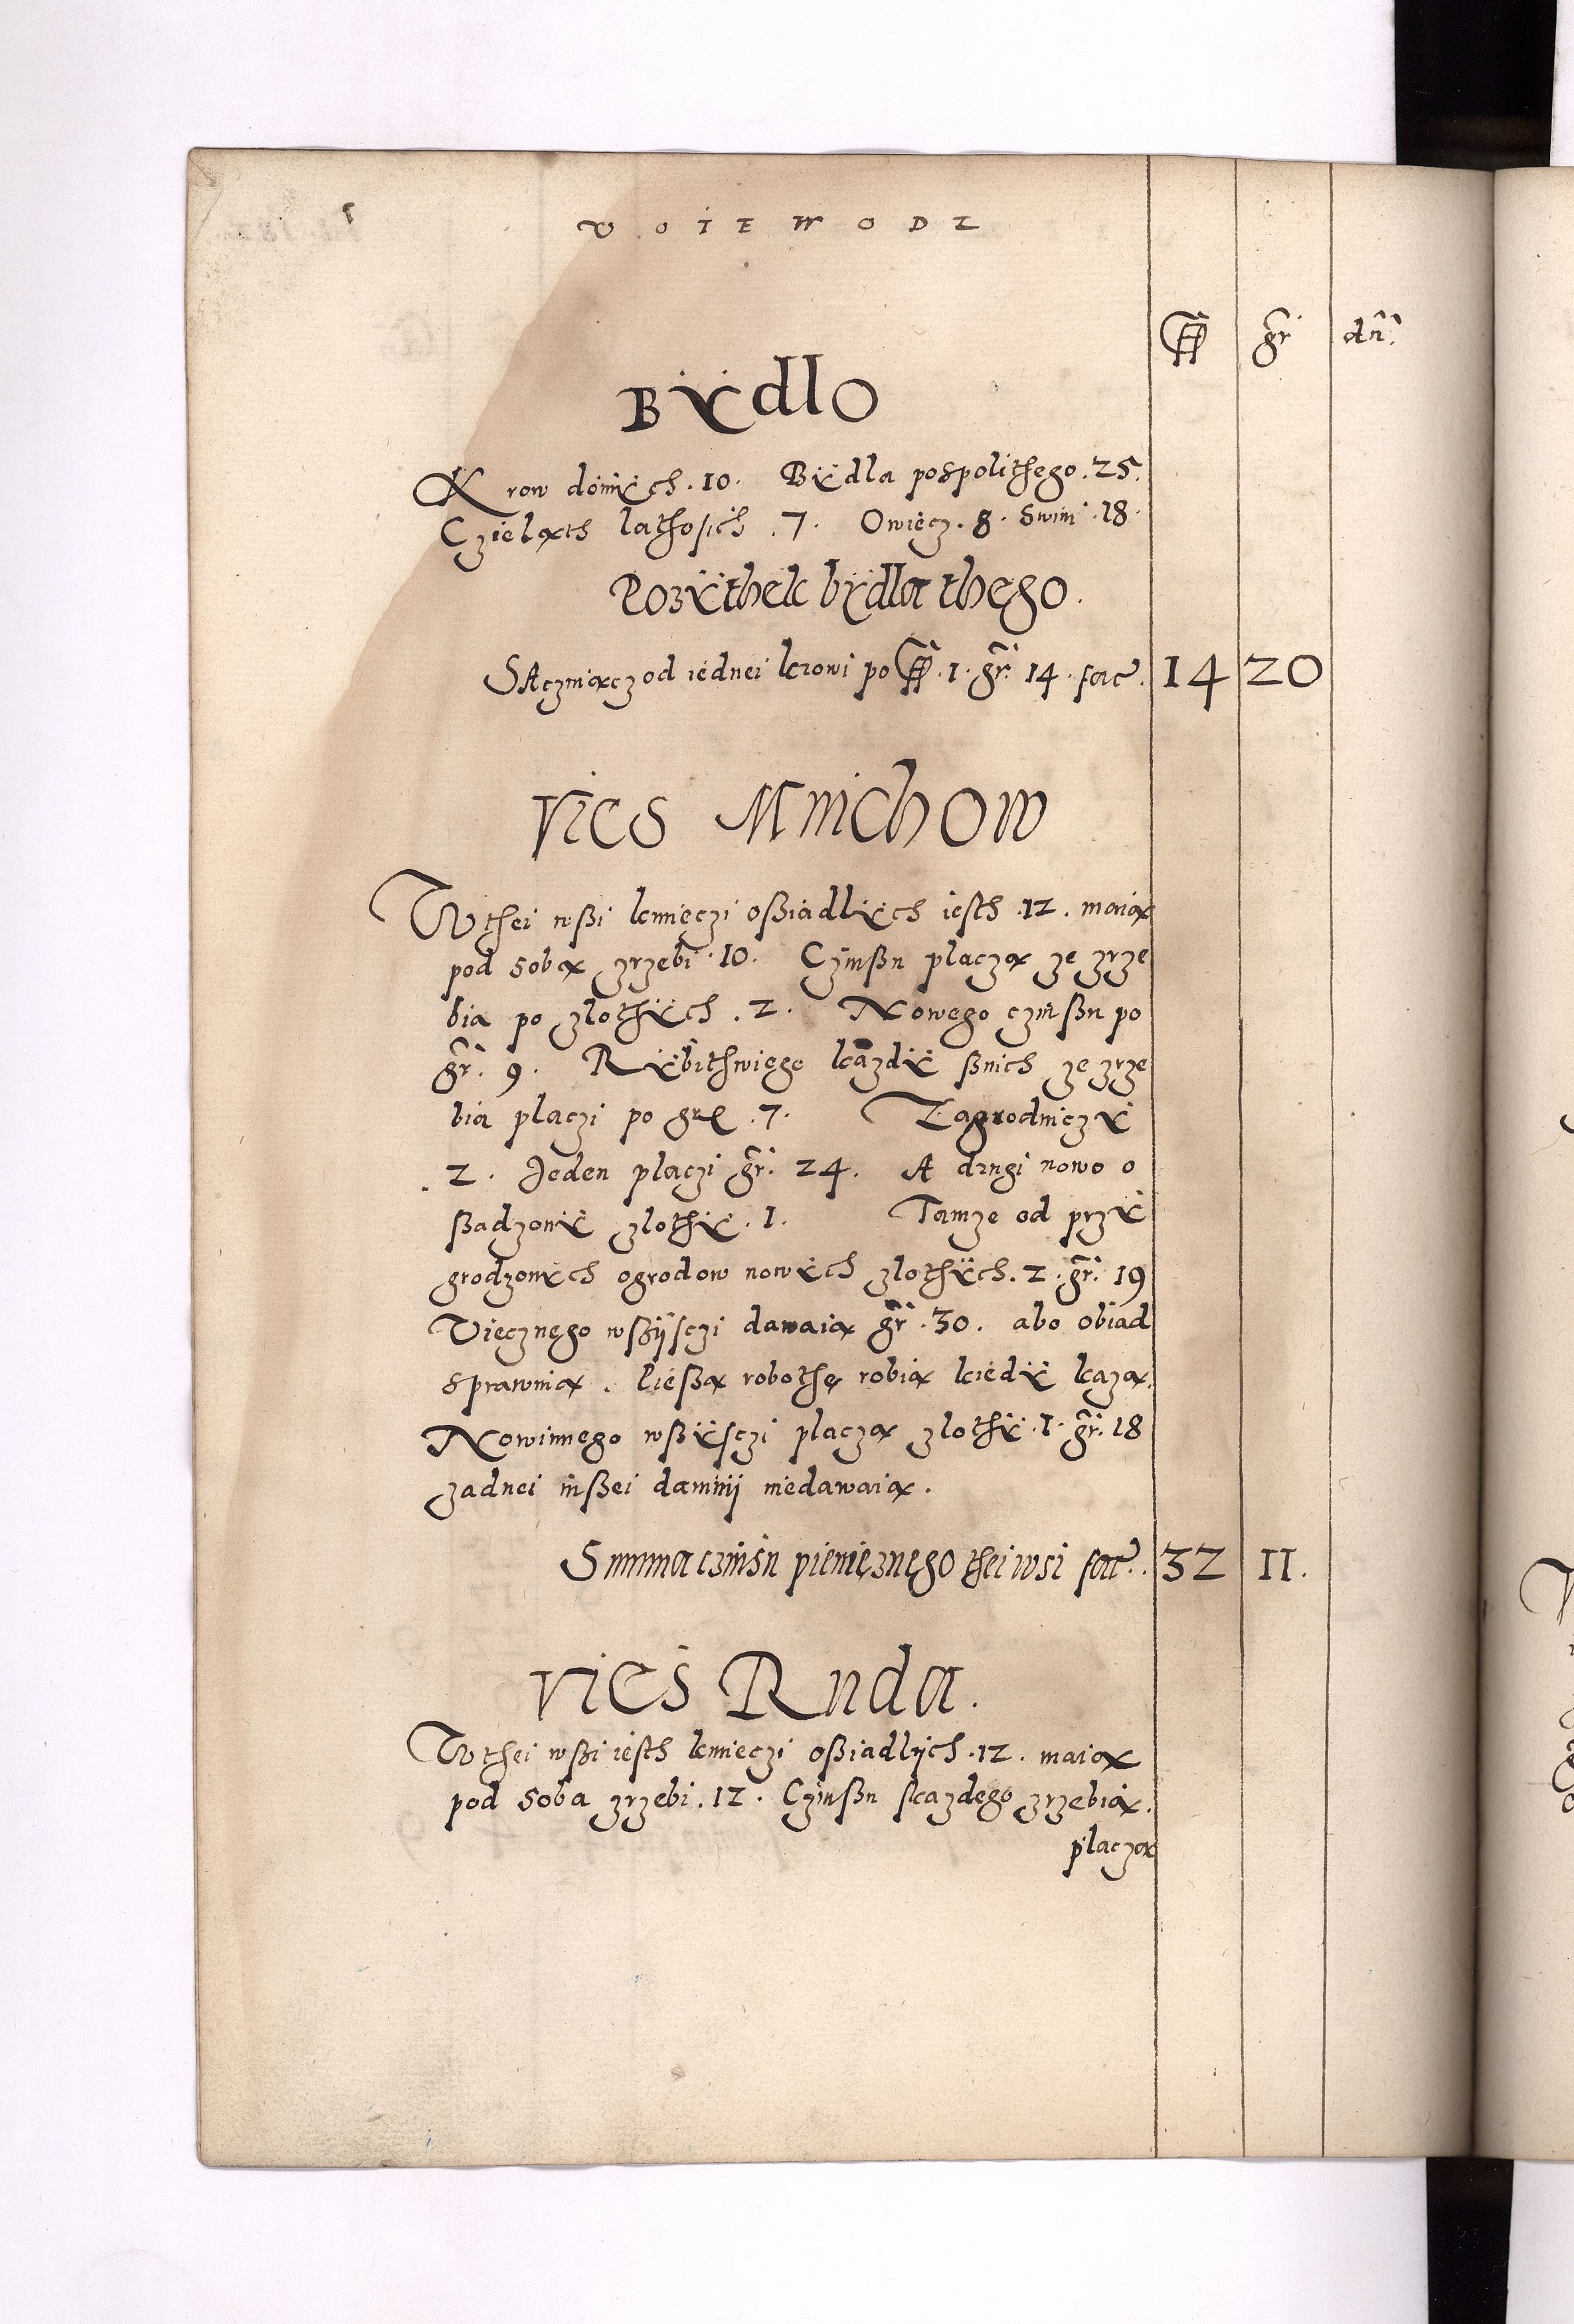 VOIEWODZ
ff gr dn.
Bÿdlo
Krow doinÿch . 10 . Bÿdla pospolithego . 25 .
Czieląth lathosich . 7 . Owięcz . 8 . Swini . 18 .
Pozÿthek bÿdla thęgo .
SAczuiącz od iednei krowi po ff . 1 . gr. 14 . fac. 14 20
VIES MnichOW
W thei wßi kmięczi oßiadlÿch iesth . 12 . maią
pod sobą zrzebi . 10 . Czinßu placzą ze zrze
bia po zlothÿch . 2 . Nowego czinßu po
gr. 9 . Rÿbithwięgo kazdÿ ßnich ze zrze
bia placzi po gr . 7 . Zagrodniczÿ
. 2 . Jeden placzi gr. 24 . A drugi nowo o
ßadzonÿ zlothÿ . 1 . Tamze od przÿ
grodzonÿch ogrodow nowÿch zlothÿch . 2 . gr. 19
Viecznęgo wßÿsczi dawaią gr . 30 . abo obiad
sprawuią . Pießą robothę robią kiedÿ kazą .
Nowinnego wßÿsczi placzą zlothÿ . 1 . gr. 18
zadnei inßei daninÿ niedawaią .
Summa czinsu pienięznęgo thei wsi fac. 32 11 .
VIES Ruda .
W thei wßi iesth kmieczi oßiadlÿch . 12 . maią
pod soba zrzebi . 12 . Czinßu skazdego zrzebią .
placzą